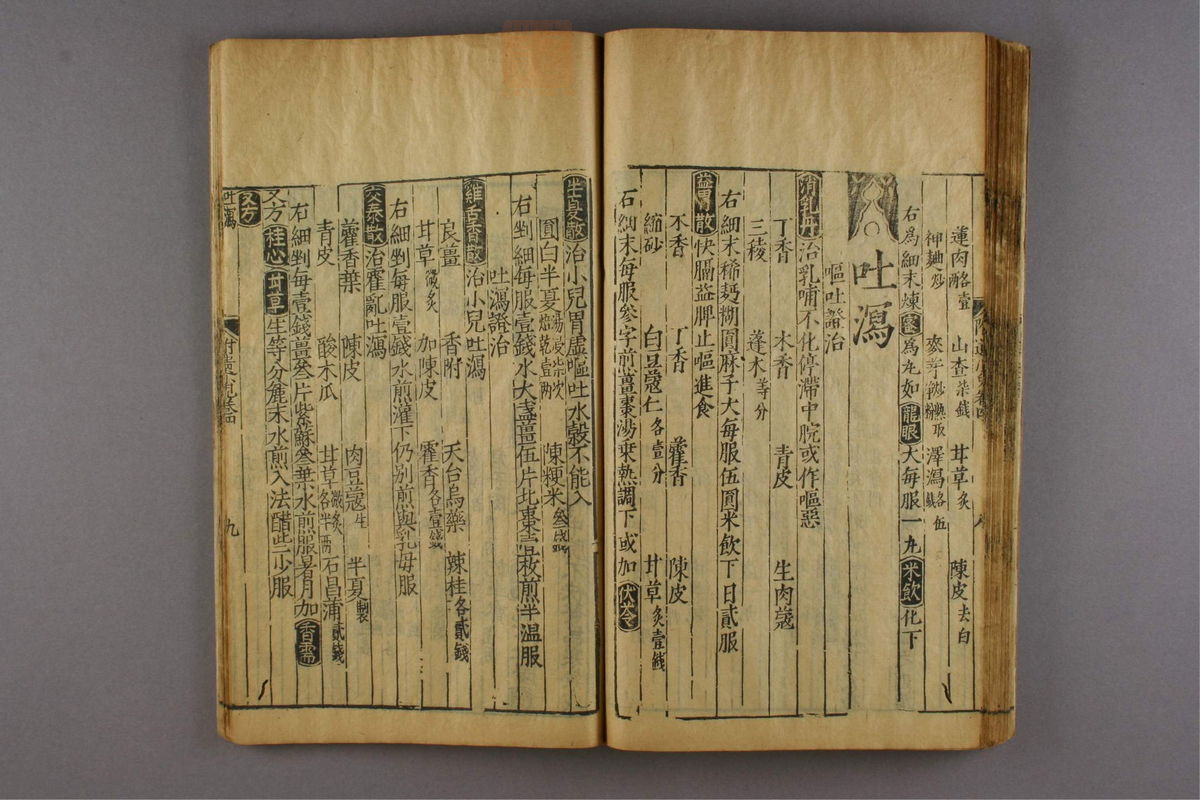 蓮肉酪壹兩 山查柒錢 甘草炙 陳皮去白
神麯炒 麥芽炒 澤瀉各伍錢
右為細末煉蜜為丸如龍眼大每服一丸米飲化下
吐瀉
嘔吐證治
消乳丹治乳哺不化停滯中脘或作嘔惡
丁香 木香 青皮 生肉蔻
三稜 蓬木等分
右細末稀麪糊圓麻子大每服伍圓米飲下日貳服
益胃散快膈益脾止嘔進食
木香 丁香 藿香 陳皮
縮砂 白豆蔻仁各壹分 甘草炙壹錢
右細末每服參字煎薑棗湯乗熱調下或加伏苓
半夏散治小兒胃虛嘔吐水穀不能入
圓白半夏湯皮次焙乾壹兩 陳粳米叄錢
右剉細每服壹錢水大盞薑伍片北棗壹枚煎半温服
吐瀉證治
雞舌香散治小兒吐瀉
良薑 香附 天台烏藥 辣桂各貳錢
甘草微炙 加陳皮 藿香各壹錢
右細剉每服壹錢水煎灌下仍別煎與乳母服
交泰散治霍亂吐瀉
藿香葉 陳皮 肉豆蔻生 半夏製
青皮 酸木瓜 甘草微炙各半兩 石昌蒲貳錢
右細剉每壹錢薑叄片紫蘇叄葉水煎服暑月加香薷
又方桂心甘草生等分麄末水煎入法醋些少服
又方
吐瀉
九